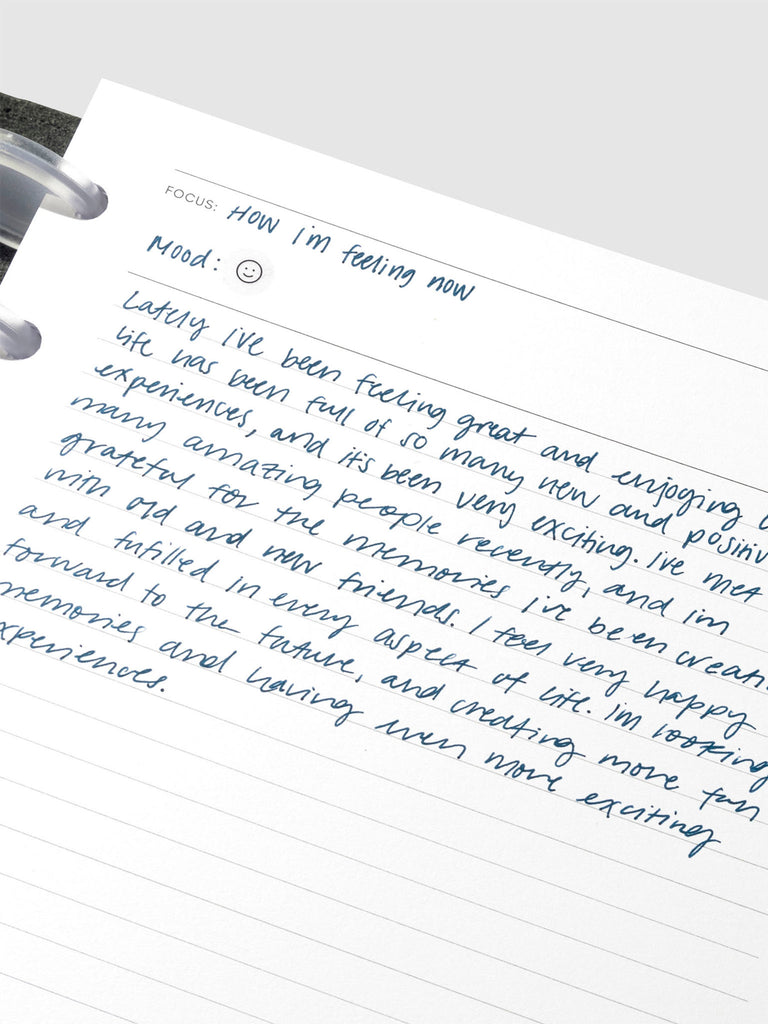 FOCUS: HOW i'm feeling now
Mood:
Lately i've been feeling great and enjoying
life has been full of so many new and positiv
experiences, and it's been very exciting. i've met
many amazing people recently, and im
grateful for the memories i've been creati
with old and new friends. I feel very happy
and fufilled in every aspect of life. im looking
forward to the future, and creating more fun
memories and having even more exciting
xperiences.